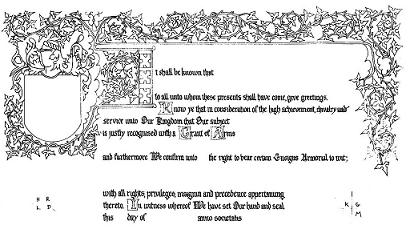 It shall be known that
to all unto whom these presents shall have come, give greetings.
Know ye that in consideration of the high achievement, chivalry and
service unto Our Kingdom that Our subject
is justly recognised with a Grant of Arms
and furthermore We confirm unto the right to bear certain Ensigns Armorial to wit;
with all rights, privileges, insignia and precedence appertaining
thereto. In witness whereof We have set Our hand and seal
this day of anno societatis
H R
L D
K G
M